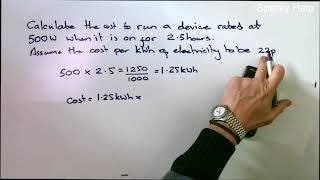 Sparky Help
Calculate the cost to run a device rated at
500W when it is on for 2.5 hours.
Assume the cost per kWh of electricity to be 22p
500 × 2.5 = 1250/1000 = 1.25 kWh
Cost = 1.25 kWh ×